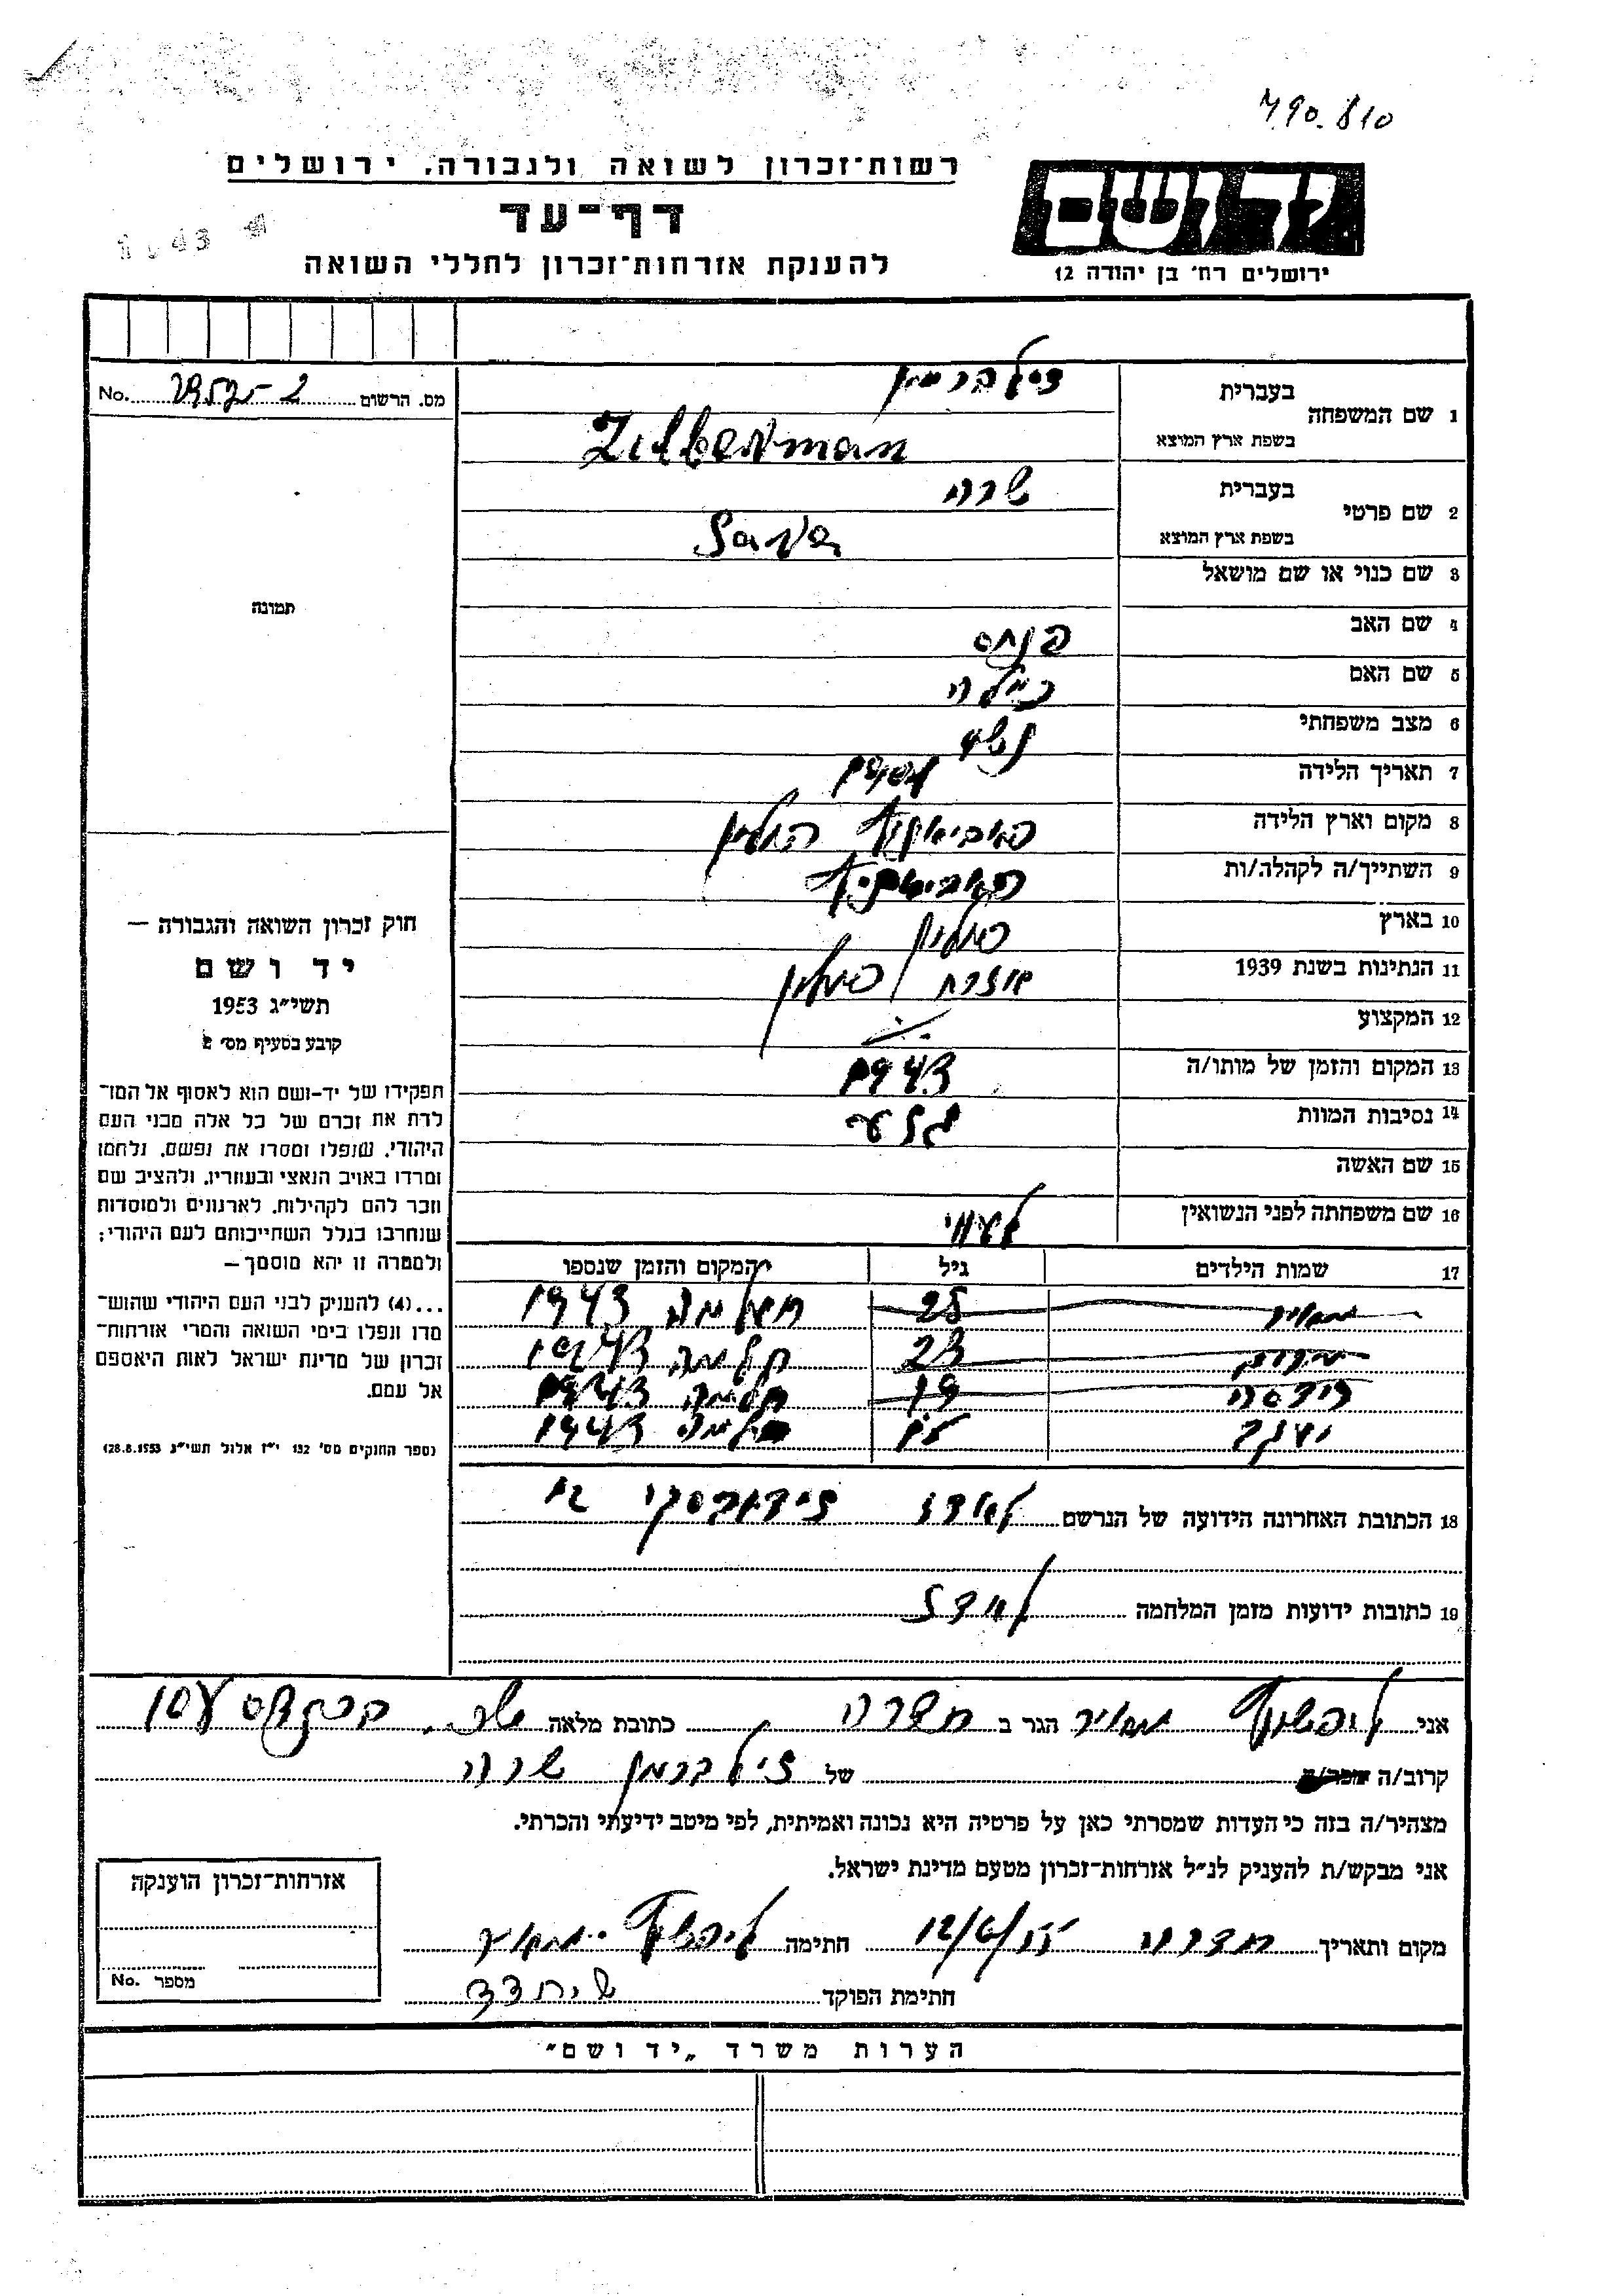 490.810
רשות־זכרון לשואה ולגבורה. ירושלים
יד ושם
דף־עד
להענקת אזרחות־זכרון לחללי השואה
ירושלים רח׳ בן יהודה 12
מס. הרשום No.
1 שם המשפחה בעברית זילברמן
בשפת ארץ המוצא Zilberman
2 שם פרטי בעברית שרה
בשפת ארץ המוצא Sara
3 שם כנוי או שם מושאל
תמונה
4 שם האב פנחס
5 שם האם
6 מצב משפחתי
7 תאריך הלידה
8 מקום וארץ הלידה פאביאניץ פולין
9 השתייך/ה לקהלה/ות
10 בארץ פולין
11 הנתינות בשנת 1939 אזרח פולין
12 המקצוע
13 המקום והזמן של מותו/ה 1943
14 נסיבות המוות
15 שם האשה
16 שם משפחתה לפני הנשואין
17 שמות הילדים גיל המקום והזמן שנספו
25 1943
23 חלמה 1943
19 חלמה 1943
יעקב חלמה 1943
18 הכתובת האחרונה הידועה של הנרשם לודז
19 כתובות ידועות מזמן המלחמה לודז
חוק זכרון השואה והגבורה —
יד ושם
תשי״ג 1953
קובע בסעיף מס׳ 2
תפקידו של יד-ושם הוא לאסוף אל המו־
לדת את זכרם של כל אלה מבני העם
היהודי, שנפלו ומסרו את נפשם, נלחמו
ומרדו באויב הנאצי ובעוזריו, ולהציב שם
וזכר להם לקהילות, לארגונים ולמוסדות
שנחרבו בגלל השתייכותם לעם היהודי;
ולמטרה זו יהא מוסמך —
...(4) להעניק לבני העם היהודי שהוש־
מדו ונפלו בימי השואה והמרי אזרחות־
זכרון של מדינת ישראל לאות היאספם
אל עמם.
(ספר החוקים מס׳ 132 י״ז אלול תשי״ג 28.8.1953)
אני ליפשיץ מאיר הגר ב חדרה כתובת מלאה
קרוב/ה של זילברמן שרה
מצהיר/ה בזה כי העדות שמסרתי כאן על פרטיה היא נכונה ואמיתית, לפי מיטב ידיעתי והכרתי.
אני מבקש/ת להעניק לנ״ל אזרחות־זכרון מטעם מדינת ישראל.
מקום ותאריך חדרה 12/6/55 חתימה ליפשיץ מאיר
חתימת הפוקד
אזרחות־זכרון הוענקה
מספר No.
הערות משרד „יד ושם״